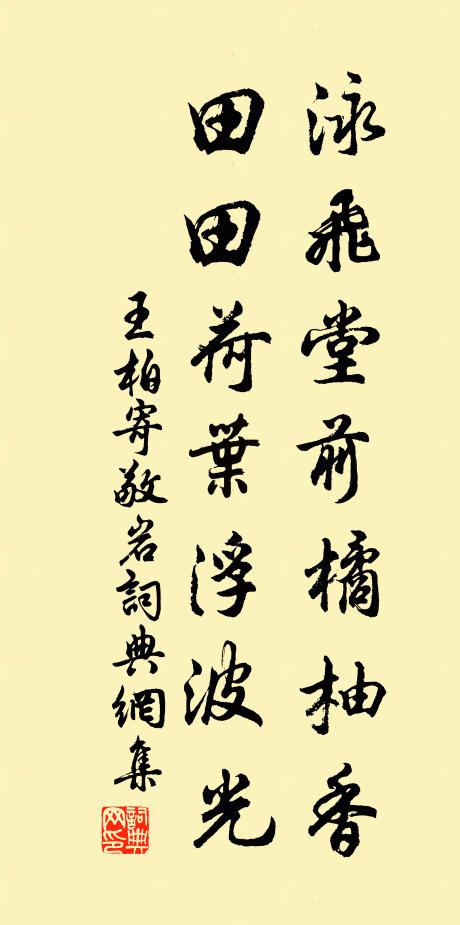 泳飛堂前橘柚香
田田荷葉浮波光
王柏寄敬岩詞典網集
詞典網印